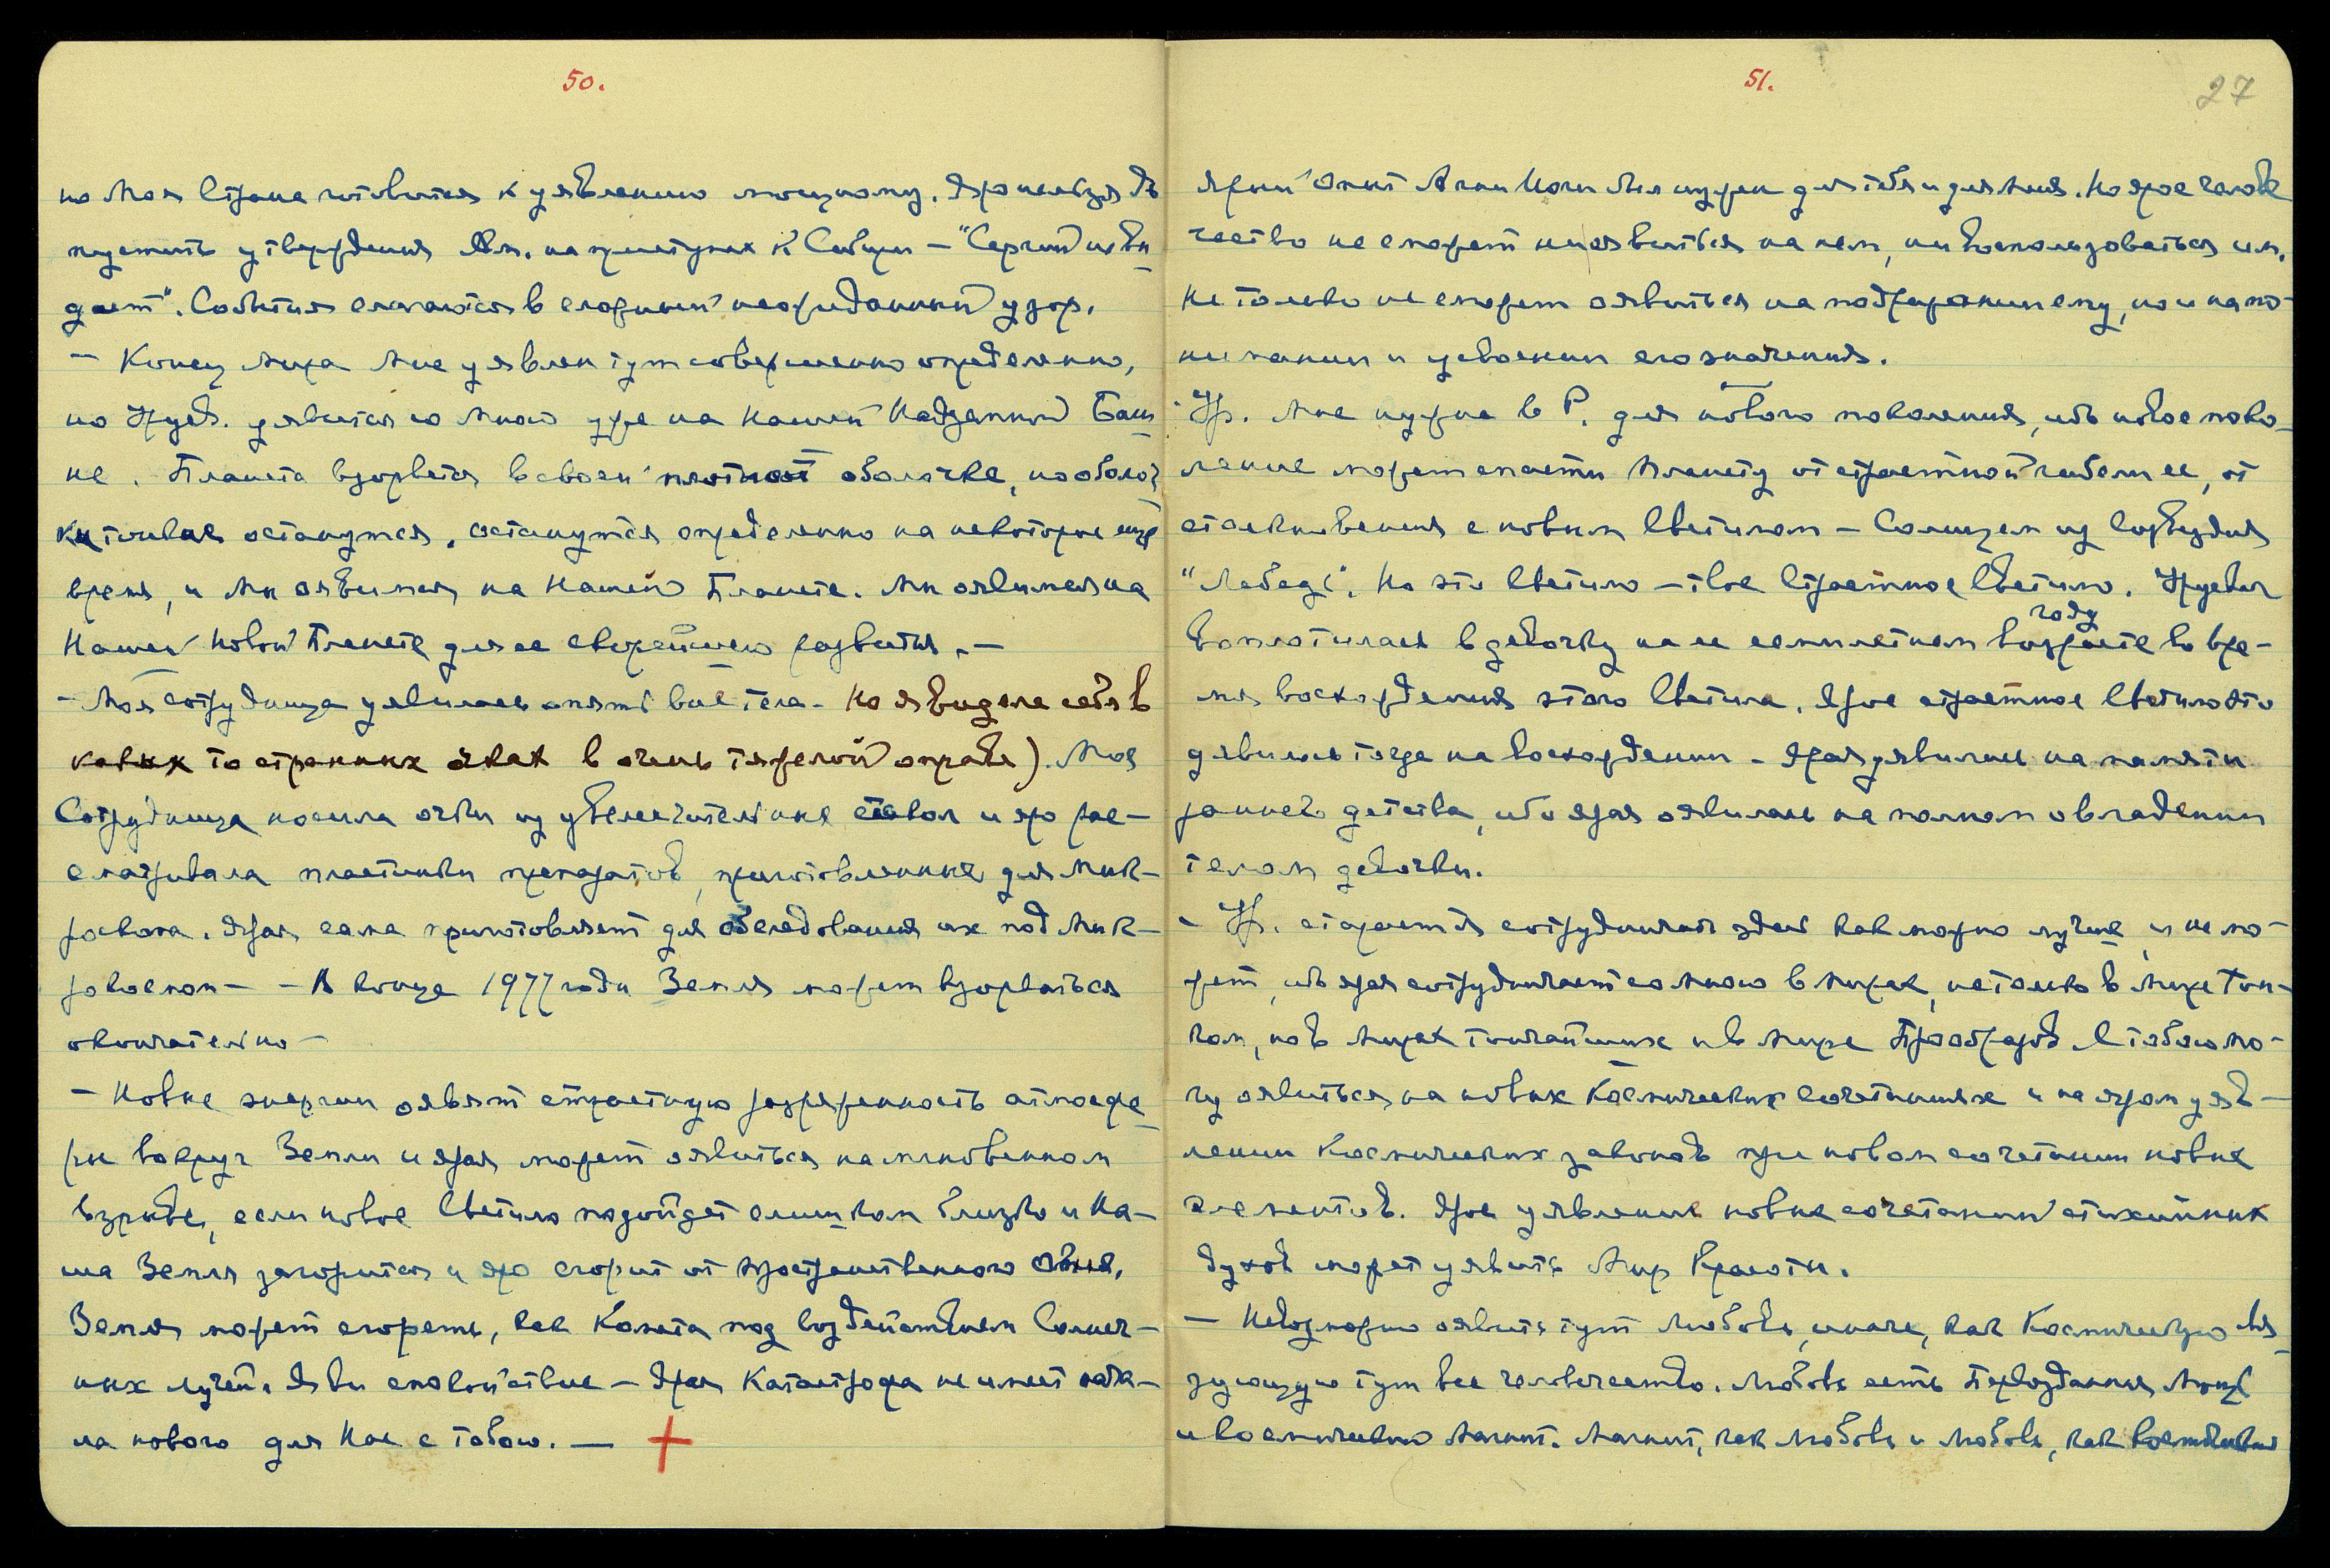 50.
но Моя Страна готовится к уявлению мощному. Яро нельзя до
пустить утверждения Ам. на приступах к Сибири – "Сергий не ви
дает". События слагаются в сложный неожиданный узор.
– Конец мира Мне уявлен тут совершенно определенно,
но Урусв. уявится со Мною уже на Нашей Надземной Баш
не. Планета взорвется в своей плотной оболочке, но оболоч
ки тонкие останутся, останутся определенно на некоторое ещё
время, и Мы оявимся на Нашей Планете. Мы оявимся на
Нашей Новой Планете для ее скорейшего развития. –
– Моя сотрудница уявилась опять вне тела – Но я видела себя в
каких то странных очках в очень тяжелой оправе). Моя
Сотрудница носила очки из увеличительных стекол и яро рас–
сматривала пластинки препаратов, приготовленные для Мик–
роскопа. Ярая сама приготовляет для обследования их под Мик–
роскопом – – В конце 1977 года Земля может взорваться
окончательно –
– Новые энергии оявят страстную разреженность атмосфе
ры вокруг Земли и ярая может оявиться на мгновенном
взрыве, если новое Светило подойдет слишком близко и На–
ша Земля загорится и яро сгорит от пространственного огня.
Земля может сгореть, как Комета под воздействием Солнеч–
ных лучей. Яви спокойствие – Ярая Катастрофа не имеет нача–
ла нового для Нас с тобою. – +
51.
27
Ярый Опыт Агни Йоги Мы нужен для тебя и для Меня. Но ярое челове
чество не сможет ни явиться на нем, ни воспользоваться им.
Не только не сможет оявиться на подражании ему, но и на по–
нимании и усвоении его значения.
Ур. Мне нужна в Р. для нового поколения, ибо новое поко–
ление может спасти Планету от страстной гибели ее, от
столкновения с новым Светилом – Солнцем из Созвездия
"Лебедь". Но это Светило – твое Страстное Светило. Урусвати
воплотилась в девочку на ее семилетнем возрасте во вре–
году
мя восхождения этого Светила. Ярое страстное Светило это
уявилось тогда на восхождении – Ярая уявилась на памяти
раннего детства, ибо ярая оявилась на полном овладении
телом девочки.
– Ур. старается сотрудничать здесь как можно лучше, и не мо–
жет, ибо ярая сотрудничает со Мною в Мирах, не только в Мире Тон–
ком, но в Мирах тончайших и в Мире Прообразов. С тобою мо–
гу оявиться на новых Космических сочетаниях и на яром уяв–
лении Космических законов при новом сочетании новых
элементов. Ярое уявление новых сочетаний стихийных
духов может уявить Мир Красоты.
– Невозможно оявить тут Любовь, иначе, как Космическую Свя
зующую тут все человечество. Любовь есть Первозданная Мощь
и Космический Магнит. Магнит, как Любовь и Любовь, как Космический